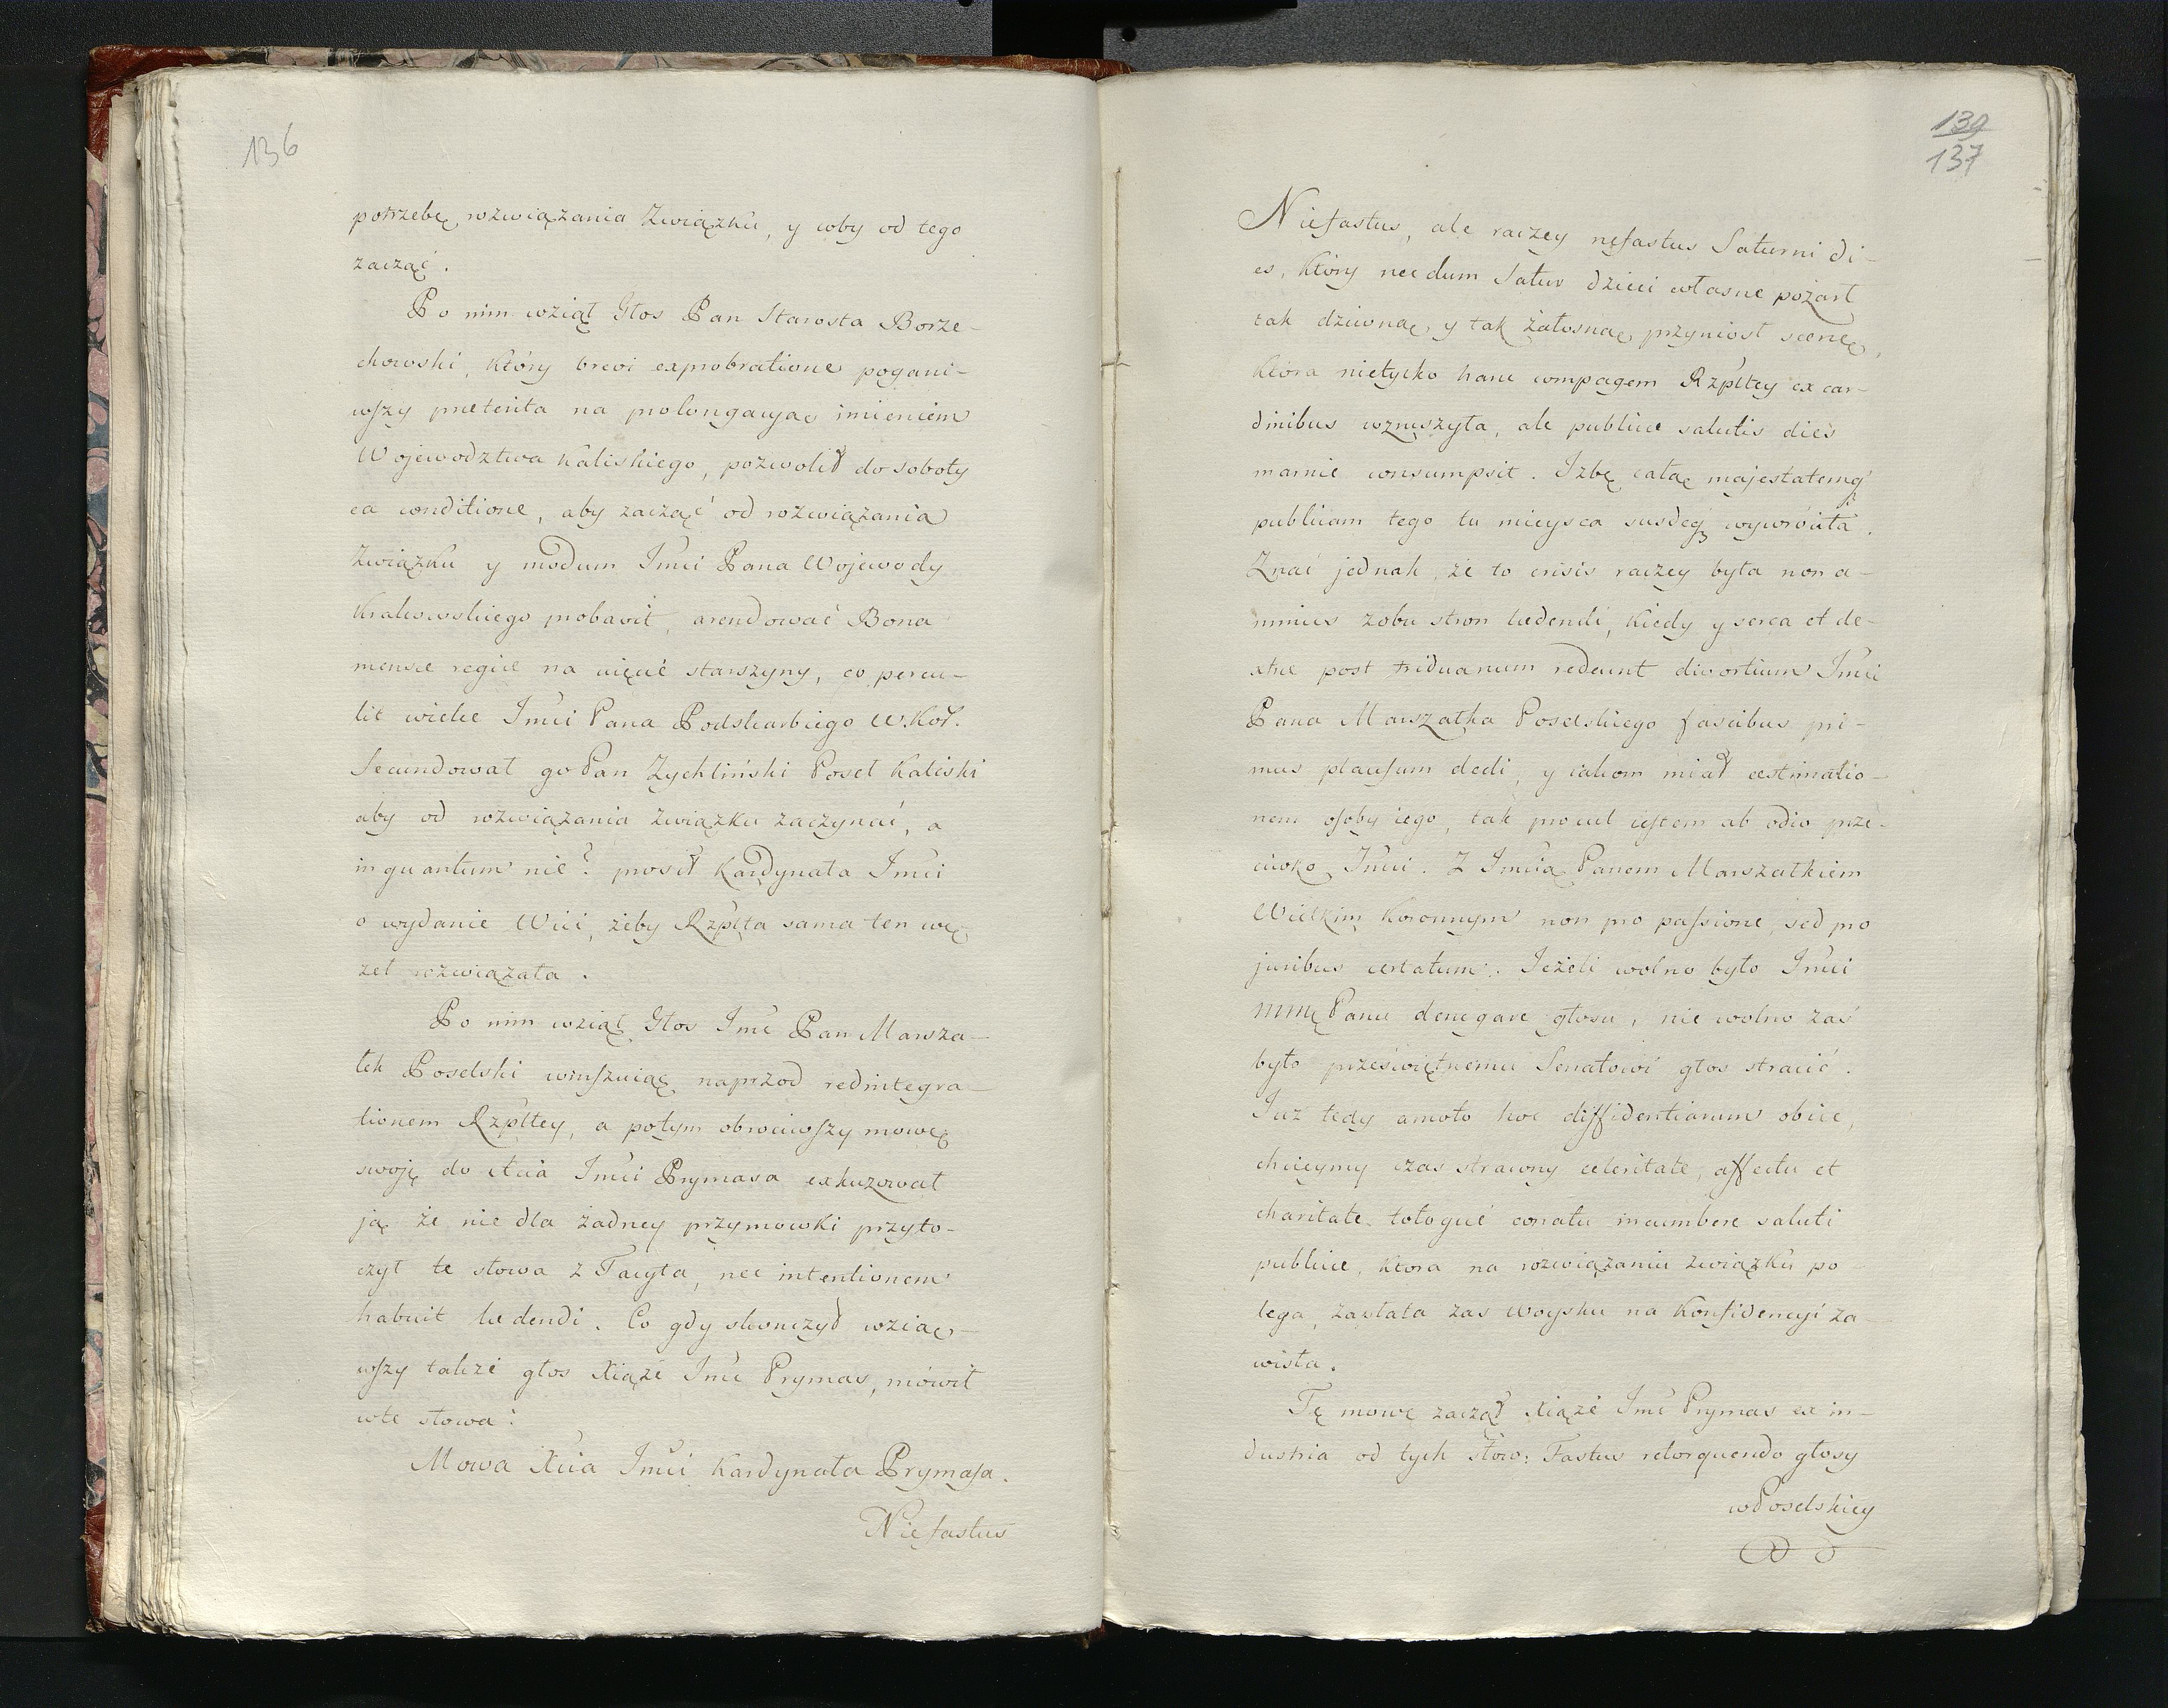 136
potrzebę rozwiązania Związku, y coby od tego
zacząć.
Po nim wziął Głos Pan Starosta Borze-
chowski, który brevi exprobratione pogani-
wszy preterita na prolongacyą imieniem
Województwa Kaliskiego, pozwolił do soboty
ea conditione, aby zacząć od rozwiązania
Związku y modum Jmci Pana Wojewody
Krakowskiego probavit, arendować Bona
mensae regiae na więcć starszyny, co percu-
lit wielce Jmci Pana Podskarbiego W. Kor.
Secundował go Pan Zychliński Poseł Kaliski
aby od rozwiązania związku zaczynać, a
inquantum nie? prosił Kardynała Jmci
o wydanie Wici, żeby Rzplta sama ten wę-
zeł rozwiązała.
Po nim wziął Głos Jmć Pan Marsza-
łek Poselski winszuiąc naprzod redintegra-
tionem Rzpltey, a potym obrociwszy mowę
swoję do Xcia Jmci Prymasa exkuzował
ją że nie dla żadney przymowki przyto-
czył te słowa z Tacyta, nec intentionem
habuit laedendi. Co gdy skonczył wziąw-
wszy także głos Xiąże Jmć Prymas, mówił
wte słowa:
Mowa Xcia Jmci Kardynała Prymasa.
Niefastus
139
137
Niefastus, ale raczey nefastus Saturni di-
es, Który necdum Satur dzieci własne pożarł
tak dziwną, y tak żałosną przyniosł scenę,
Która nietylko hanc compagem Rzpltey ex car-
dinibus wzruszyła, ale publicae salutis dies
marnie consumpsit. Izbę całą majestatemq
publicam tego tu mieysca susdeq wywróciła.
Znać jednak, że to crisis raczey była non a-
nimus zobu stron laedendi, Kiedy y serca et de-
xtrae post triduanum redeunt divortium Jmci
Pana Marszałka Poselskiego fascibus pri-
mus plausum dedi, y iakom miał aestimatio-
nem osoby iego, tak procul iestem ab odio prze-
ciwko Jmci. Z Jmcią Panem Marszałkiem
Wielkim Koronnym non pro passione, sed pro
juribus certatum. Jeżeli wolno było Jmci
mmę Panu denegare głosu, nie wolno zaś
było przeświętnemu Senatowi głos stracić.
Juz tedy amoto hoc diffidentiarum obice,
chcieymy czas strawny celeritate, affectu et
charitate totoqué conatu incumbere saluti
publicae, Ktora na rozwiązaniu związku po-
lega, zapłata zas woysku na Konfidencyi za-
wisła.
Tę mowę zaczął Xiąże Jmć Prymas ex in-
dustria od tych słow: Fastus retorquendo głosy
w Poselskiey